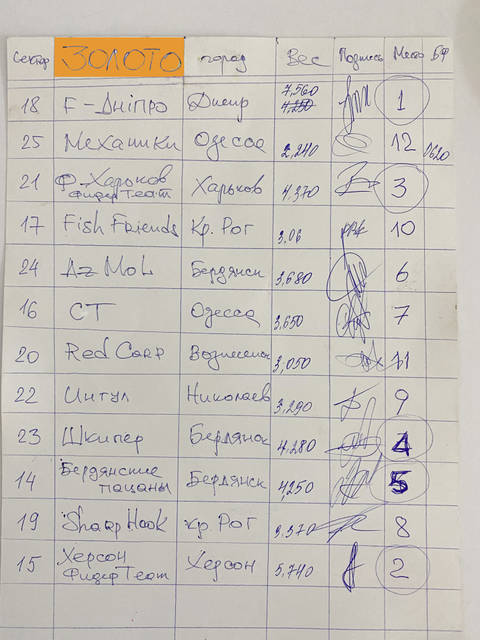 Сектор ЗОЛОТО город Вес Подпись Место БФ
18 F-Дніпро Днепр 7,560 1
25 Механики Одесса 2,240 12 0620
21 Ф-Харьков Харьков 4,370 3
Фидер Team
17 Fish Friends Кр. Рог 3,06 10
24 Az MoL Бердянск 3,680 6
16 СТ Одесса 3,650 7
20 Red Carp Вознесенск 3,050 11
22 Интул Николаев 3,290 9
23 Шкипер Бердянск 4,280 4
14 Бердянские Бердянск 4,250 5
пацаны
19 Sharp Hook Кр. Рог 3,370 8
15 Херсон Херсон 5,740 2
Фидер Team